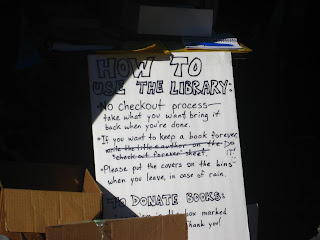 HOW TO
USE THE LIBRARY:
• No checkout process—
take what you want, bring it
back when you're done.
• If you want to keep a book forever,
write the title & author on the DO
"check out forever" sheet. IT!
• Please put the covers on the bins
when you leave, in case of rain.
TO DONATE BOOKS:
box marked
Thank you!